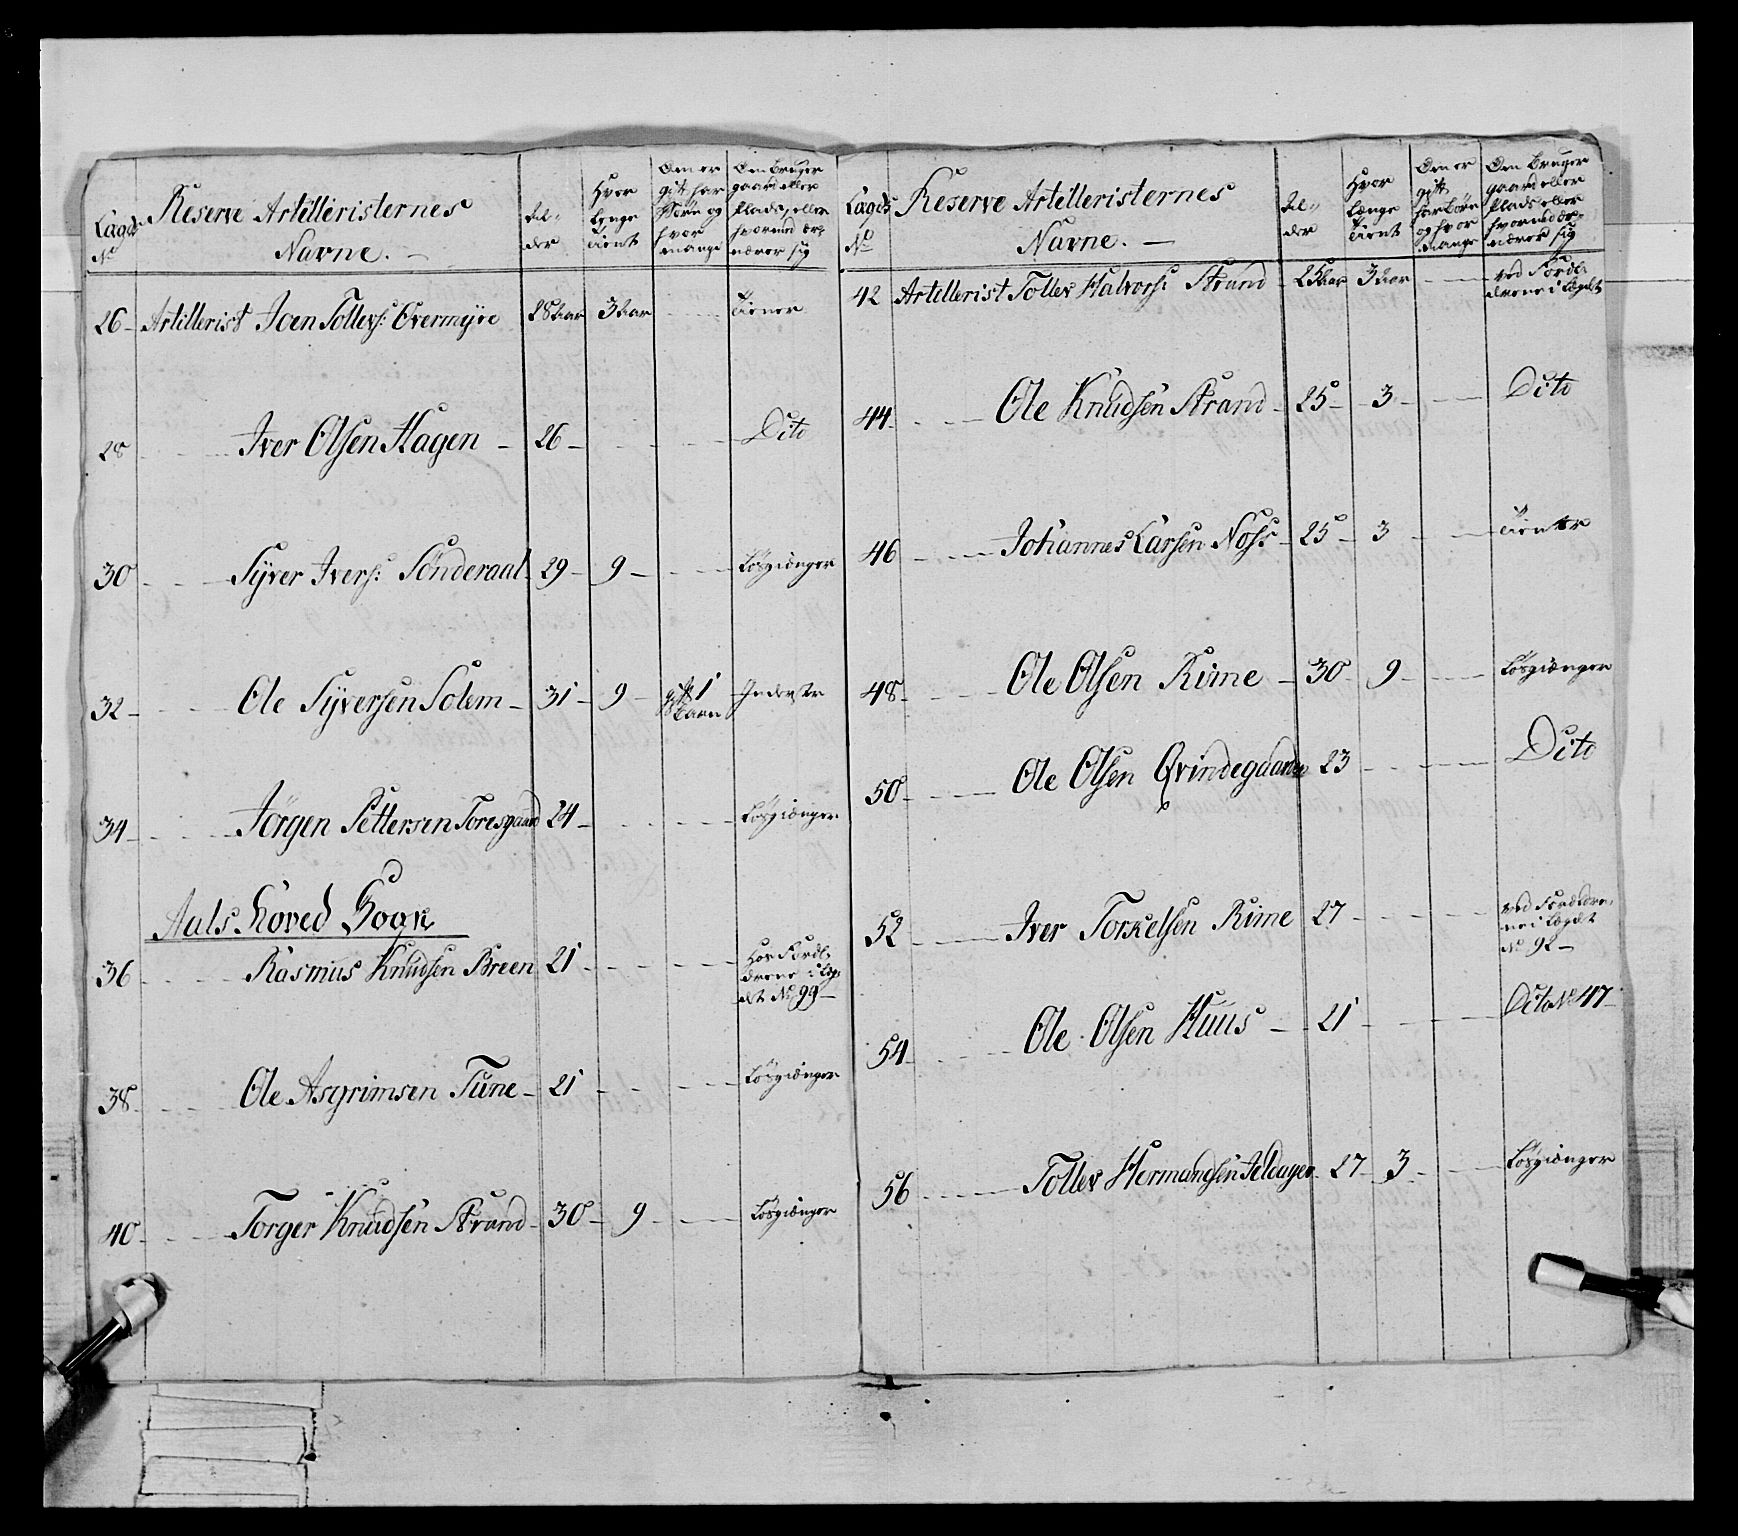 Lægds No
Reserve Artilleristernes
Navne.
Al-
der
Hvor
længe
tient
Om er
gift, har
Börn og
hvor
mange
Om bruger
gaard eller
Plads, eller
hvormed er-
nærer sig
26 Artillerist Joen Tollevs: Övermyre 28 Aar 3 Aar Tiener
28 Iver Olsen Hagen 26 Dito
30 Syver Ivers: Sönderaal 29 9 Løsgiænger
32 Ole Syversen Solem 31 9 gift 1 Barn Inderste
34 Jörgen Pettersen Toresgaard 24 Løsgiænger
Aals Hoved Sogn
36 Rasmus Knudsen Breen 21 Hos Foræl-
drene i Læg-
det No 99
38 Ole Asgrimsen Tune 21 Løsgiænger
40 Torger Knudsen Strand 30 9 Løsgiænger
Lægds No
Reserve Artilleristernes
Navne.
Al-
der
Hvor
længe
tient
Om er
gift
har Börn
og hvor
mange
Om bruger
gaard eller
Plads eller
hvormed er-
nærer sig
42 Artillerist Tollev Halvors: Strand 25 Aar 3 Aar ved Foræl-
drene i Lægdet
44 Ole Knudsen Strand 25 3 Dito
46 Johannes Larsen Noss 25 3 Tiener
48 Ole Olsen Rime 30 9 Løsgiænger
50 Ole Olsen Qvindegaarden 23 Dito
52 Iver Torkelsen Rime 27 ved Forældre-
ne i Lægdet
No 92
54 Ole Olsen Huus 21 Dito No 47
56 Tollev Hermandsen 27 3 Løsgiænger